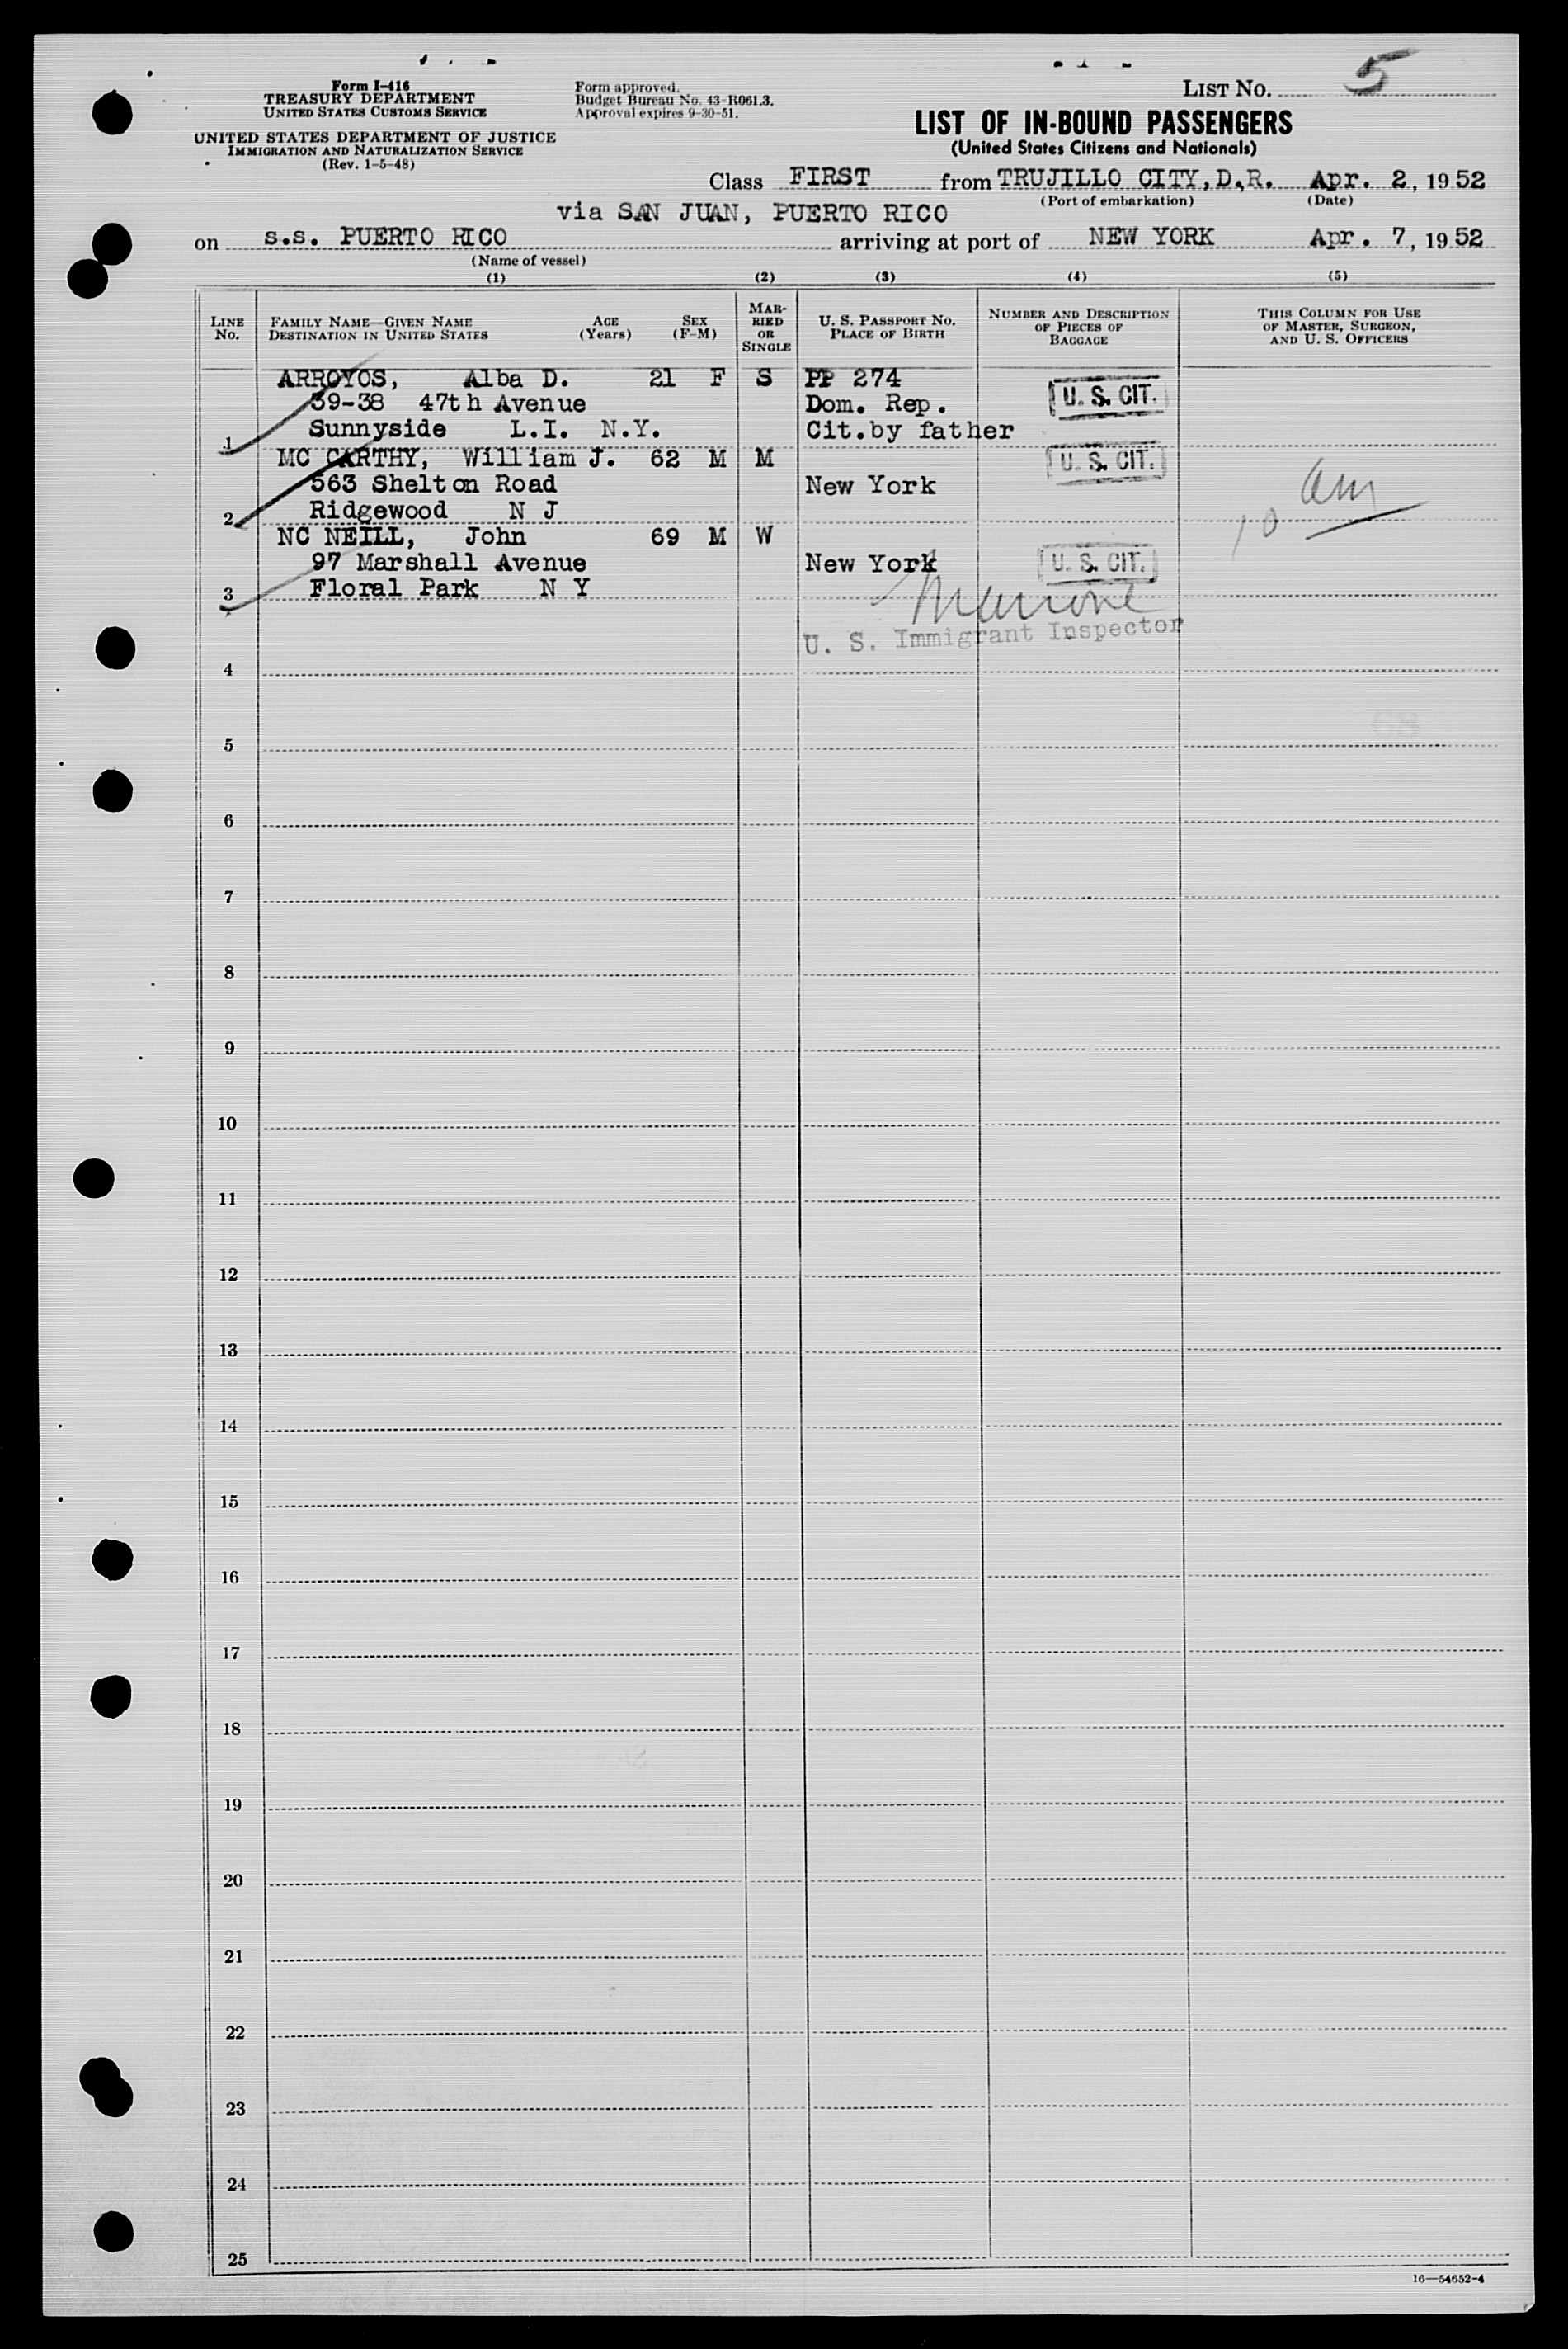 Form I-416
TREASURY DEPARTMENT
UNITED STATES CUSTOMS SERVICE
UNITED STATES DEPARTMENT OF JUSTICE
IMMIGRATION AND NATURALIZATION SERVICE
(Rev. 1-5-48)
Form approved.
Budget Bureau No. 43-R061.3.
Approval expires 9-30-51.
LIST NO. 5
LIST OF IN-BOUND PASSENGERS
(United States Citizens and Nationals)
Class FIRST from TRUJILLO CITY, D.R. Apr. 2, 1952
(Port of embarkation) (Date)
via SAN JUAN, PUERTO RICO
on s.s. PUERTO RICO arriving at port of NEW YORK Apr. 7, 1952
(Name of vessel)
(1) (2) (3) (4) (5)
LINE NO.
FAMILY NAME—GIVEN NAME
DESTINATION IN UNITED STATES
AGE (Years)
SEX (F-M)
MARRIED OR SINGLE
U. S. PASSPORT NO.
PLACE OF BIRTH
NUMBER AND DESCRIPTION OF PIECES OF BAGGAGE
THIS COLUMN FOR USE OF MASTER, SURGEON, AND U. S. OFFICERS
ARROYOS, Alba D. 21 F S PP 274
39-38 47th Avenue Dom. Rep. U. S. CIT.
1 Sunnyside L.I. N.Y. Cit.by father
MC CARTHY, William J. 62 M M U. S. CIT.
563 Shelton Road New York
2 Ridgewood N J
NC NEILL, John 69 M W
97 Marshall Avenue New York U. S. CIT.
3 Floral Park N Y
U. S. Immigrant Inspector
4
5
6
7
8
9
10
11
12
13
14
15
16
17
18
19
20
21
22
23
24
25
16—54652-4